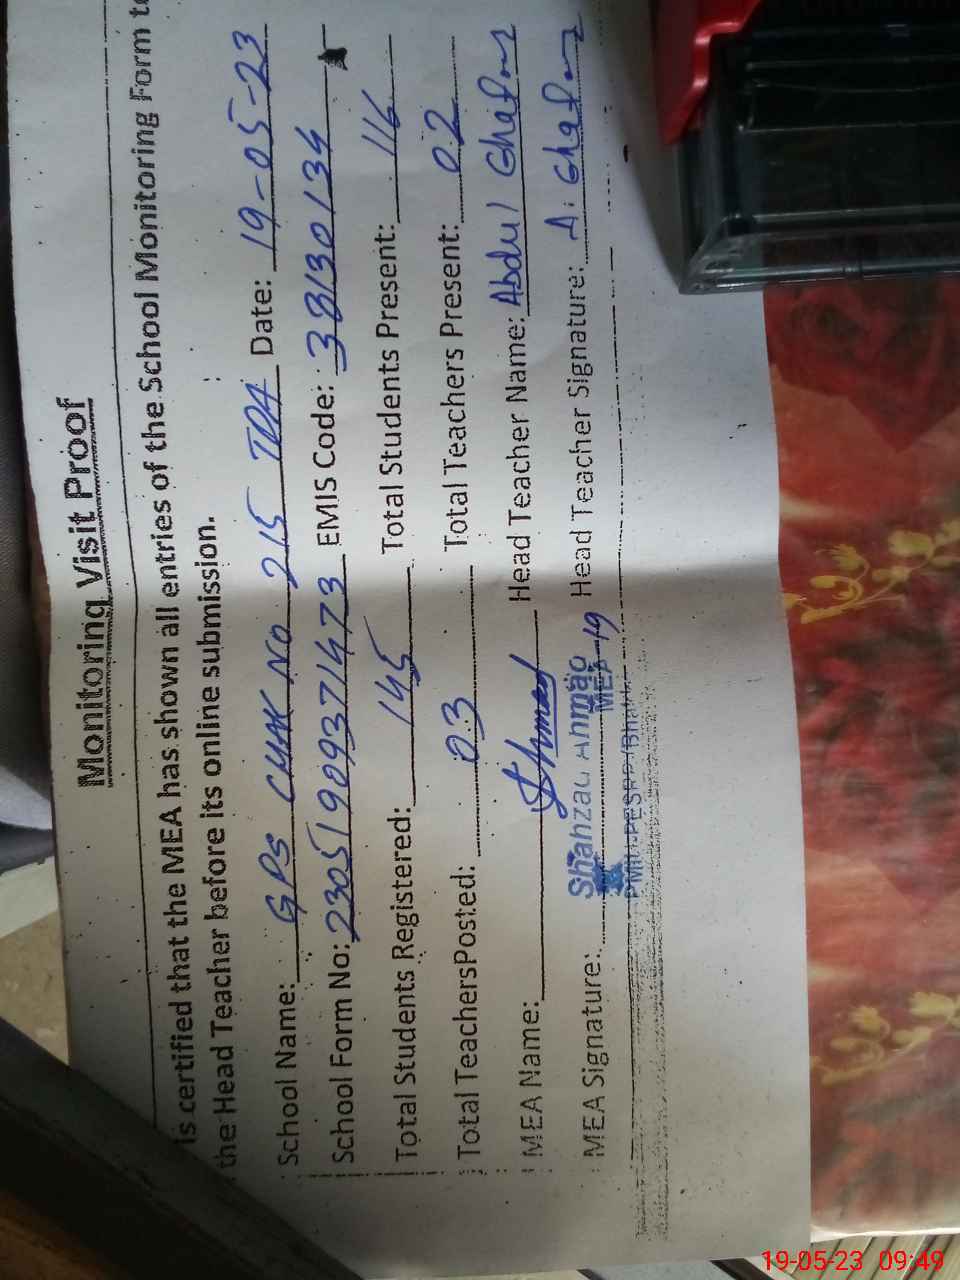 Monitoring Visit Proof
is certified that the MEA has shown all entries of the School Monitoring Form to
the Head Teacher before its online submission.
School Name: GPS CHAK NO 215 TDA Date: 19-05-23
School Form No: 23051909371473 EMIS Code: 33130134
Total Students Registered: 145 Total Students Present: 116
Total TeachersPosted: 03 Total Teachers Present: 02
MEA Name: Head Teacher Name: Abdul Ghafor
MEA Signature: Shahzad Ahmad Head Teacher Signature: A. Ghafor
MEA-19
19-05-23 09:49